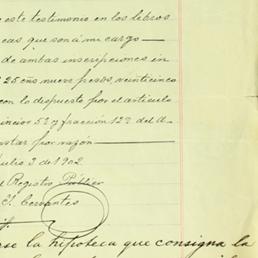 e este testimonio en los libros
cas que son á mi cargo
de ambas inscripciones in
25 cñs nueve pesos, veinticinco
con lo dispuesto por el artículo
5º y fracción 12ª del a
por razón
Julio 3 de 1902.
l Registro Público
Cervantes
se la hipoteca que consigna la